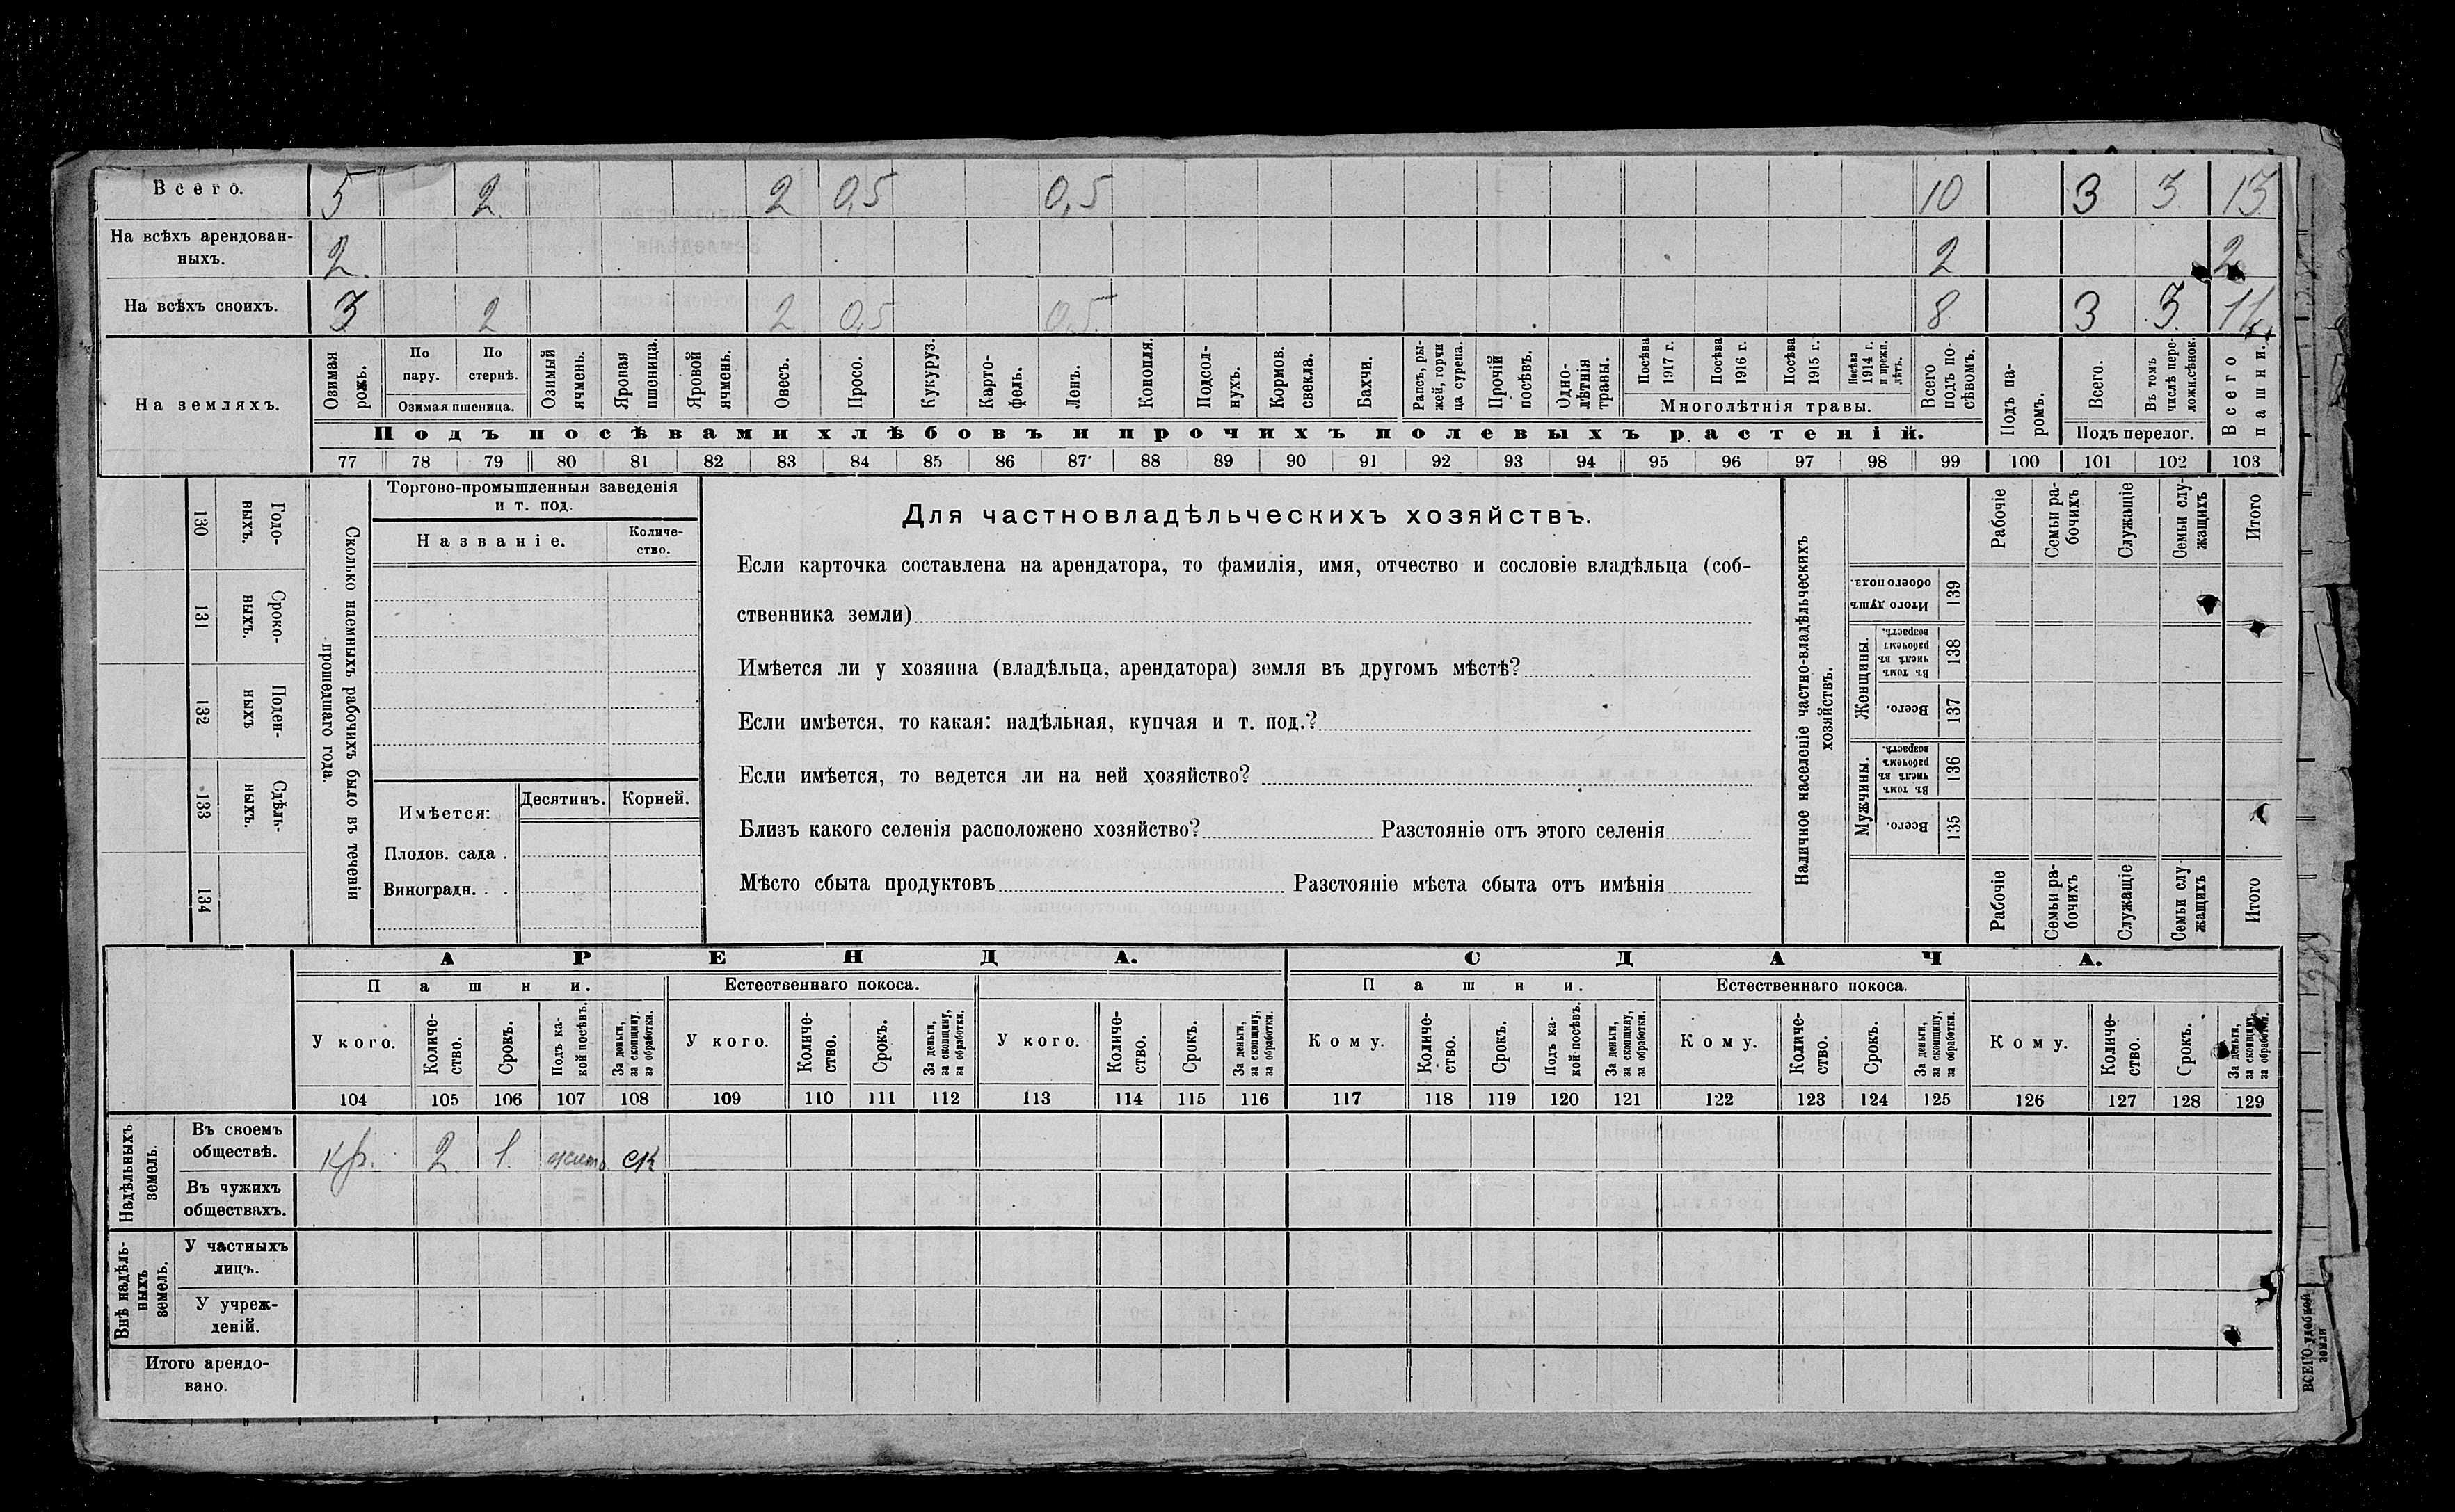 Всего. 5 2 2 0,5 0,5 10 3 3 13
На всѣхъ арендован-
ныхъ. 2 2 2
На всѣхъ своихъ. 3 2 2 0,5 0,5 8 3 3 11
На земляхъ.
Озимая рожь.
По пару.
По стернѣ.
Озимая пшеница.
Озимый ячмень.
Яровая пшеница.
Яровой ячмень.
Овесъ.
Просо.
Кукуруз.
Карто-
фель.
Ленъ.
Конопля.
Подсол-
нухъ.
Кормов.
свекла.
Бахчи.
Рапсъ, ры-
жей, горчи
ца сурепа.
Прочій
посѣвъ.
Одно-
лѣтнія
травы.
Посѣва
1917 г.
Посѣва
1916 г.
Посѣва
1915 г.
Посѣва
1914 г.
и прежн.
лѣтъ.
Многолѣтнія травы.
Всего
подъ по-
сѣвомъ.
Подъ посѣвами хлѣбовъ и прочихъ полевыхъ растеній.
Подъ па-
ромъ.
Всего.
Въ томъ
числѣ пере-
ложн.сѣнок.
Подъ перелог.
Всего
пашни.
77 78 79 80 81 82 83 84 85 86 87 88 89 90 91 92 93 94 95 96 97 98 99 100 101 102 103
130 Годо-
ныхъ.
131 Сроко-
выхъ.
132 Поден-
ныхъ
133 Сдѣль-
ныхъ.
134
Сколько наемныхъ рабочихъ было въ теченіи
прошедшаго года.
Торгово-промышленныя заведенія
и т. под.
Названіе.
Количе-
ство.
Имѣется:
Десятинъ.
Корней.
Плодов. сада .
Виноградн. . .
Для частновладѣльческихъ хозяйствъ.
Если карточка составлена на арендатора, то фамилія, имя, отчество и сословіе владѣльца (соб-
ственника земли)
Имѣется ли у хозяина (владѣльца, арендатора) земля въ другомъ мѣстѣ?
Если имѣется, то какая: надѣльная, купчая и т. под.?
Если имѣется, то ведется ли на ней хозяйство?
Близъ какого селенія расположено хозяйство? Разстояніе отъ этого селенія
Мѣсто сбыта продуктовъ Разстояніе мѣста сбыта отъ имѣнія
Наличное населеніе частно-владѣльческихъ
хозяйствъ.
Рабочіе
Семьи ра-
бочихъ
Служащіе
Семьи слу-
жащихъ
Итого
Итого душъ
обоего пола.
139
Женщины.
Въ томъ
числѣ въ
рабочемъ
возрастѣ.
138
Всего.
137
Мужчины.
Въ томъ
числѣ въ
рабочемъ
возрастѣ.
136
Всего.
135
Рабочіе
Семьи ра-
бочихъ
Служащіе
Семьи слу
жащихъ
Итого
АРЕНДА.
СДАЧА.
Пашни.
Естественнаго покоса.
Пашни.
Естественнаго покоса.
У кого.
Количе-
ство.
Срокъ.
Подъ ка-
кой посѣвъ.
За деньги,
за скопщину.
за обработки.
У кого.
Количе-
ство.
Срокъ.
За деньги,
за скопщину,
за обработки.
У кого.
Количе-
ство.
Срокъ.
За деньги,
за скопщину,
за обработки.
Кому.
Количе-
ство.
Срокъ.
Подъ ка-
кой посѣвъ.
За деньги,
за скопщину,
за обработки.
Кому.
Количе-
ство.
Срокъ.
За деньги,
за скопщину,
за обработки.
Кому.
Количе-
ство.
Срокъ.
За деньги,
за скопщину,
за обработки.
104 105 106 107 108 109 110 111 112 113 114 115 116 117 118 119 120 121 122 123 124 125 126 127 128 129
Надѣльныхъ
земель.
Въ своемъ
обществѣ. кр. 2. 1. жито ск
Въ чужихъ
обществахъ.
Внѣ надѣль-
ныхъ
земель.
У частныхъ
лицъ.
У учреж-
деній.
Итого арендо-
вано.
ВСЕГО удобной
земли